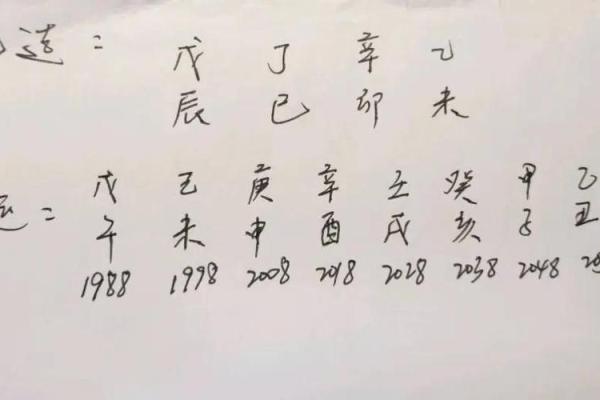 造: 戊 丁 辛 乙
辰 巳 卯 未
运: 戊 己 庚 辛 壬 癸 甲 乙
午 未 申 酉 戌 亥 子 丑
1988 1998 2008 2018 2028 2038 2048